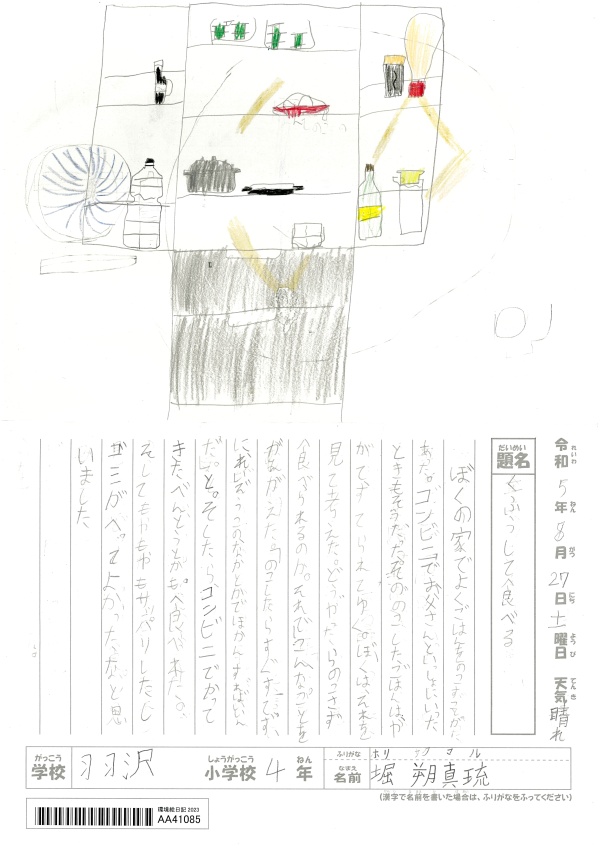 令和5年8月27日土曜日 天気晴れ
れいわ ねん がつ にち ようび てんき
だいめい
題名 くふうして食べる
ぼくの家でよくごはんをのこすことが
あった。コンビニでお父さんといっしょにいった
ときもそうだった。そののこしたごはんはや
がてすてられてゆく。ぼくは、それを
見て考えた。どうやったらのこさず
食べられるのか。それでこんなことを
かんがえた。のこしたらすぐすてず、
にれいぞうこのなかとかでほかんすればいいん
だ。と。そしたら、コンビニでかって
きたべんとうとかも食べれた。
そしてもやもやもサッパリしたし
ゴミがへってよかったな。と思
いました
がっこう
学校 羽沢
しょうがっこう ねん
小学校 4年
ふりがな ホリ
なまえ
名前 堀 朔真琉
(漢字で名前を書いた場合は、ふりがなをふってください)
環境絵日記2023
AA41085